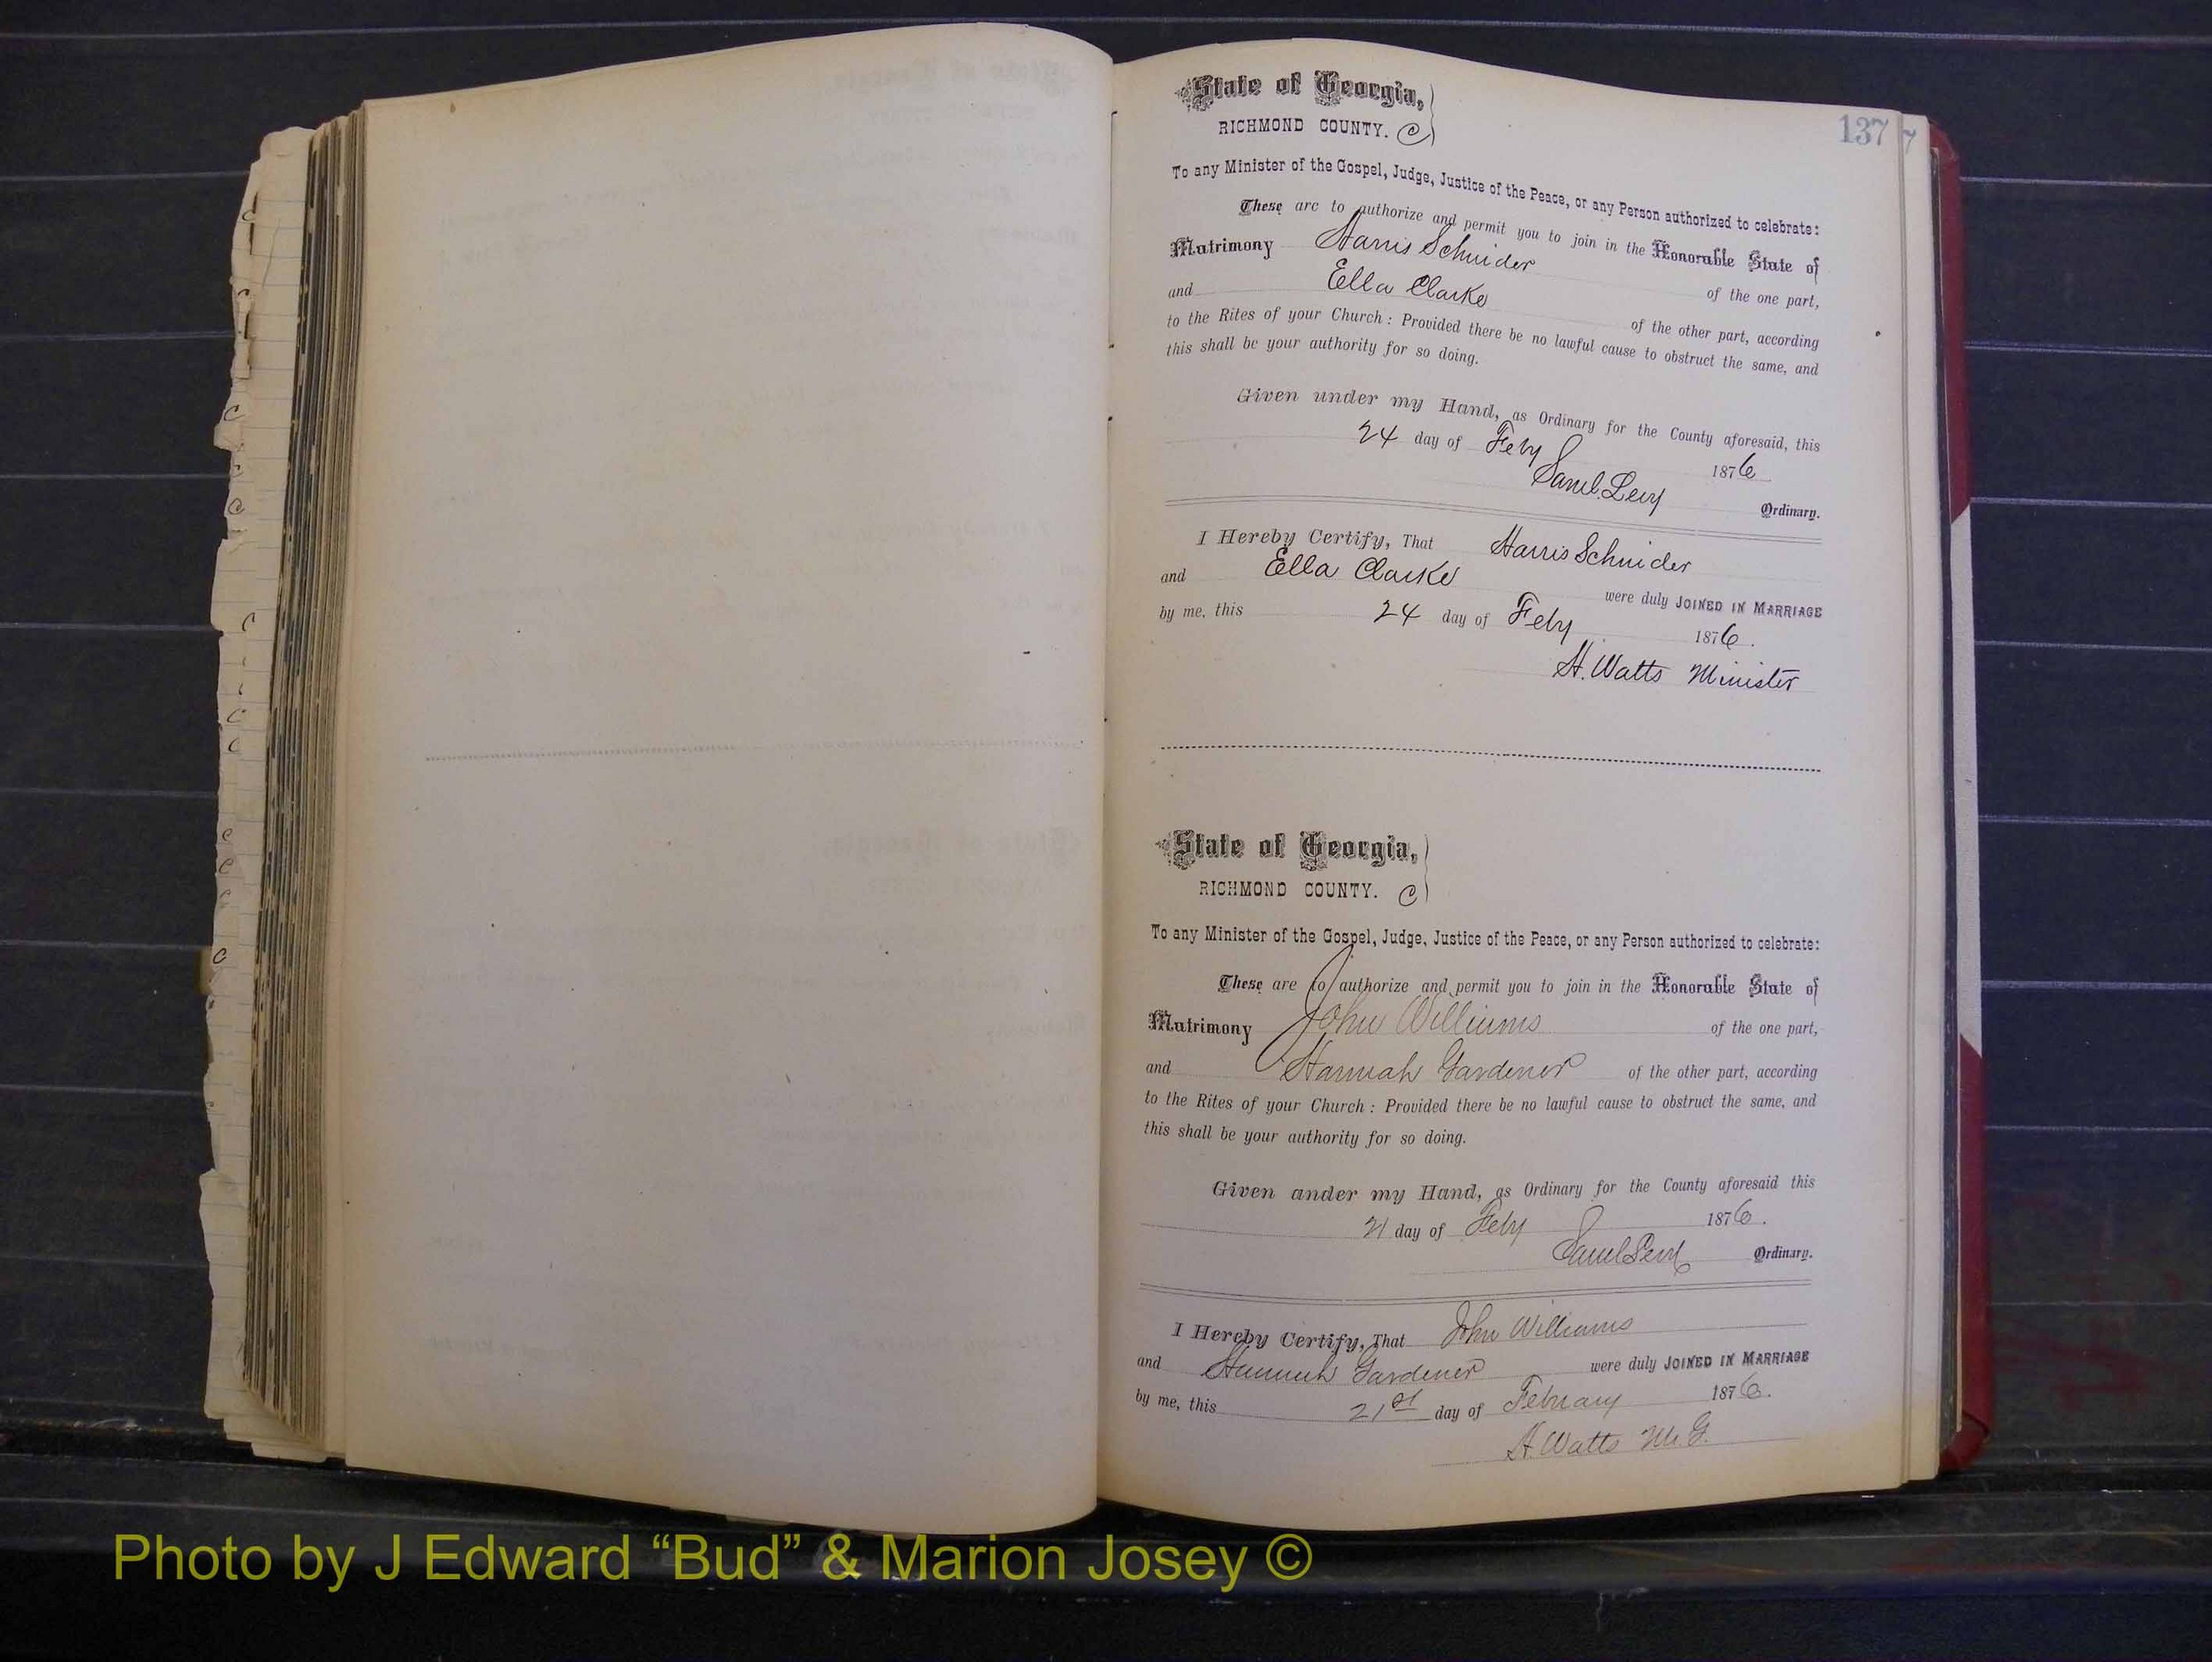 137
State of Georgia,
RICHMOND COUNTY. C
To any Minister of the Gospel, Judge, Justice of the Peace, or any Person authorized to celebrate:
These are to authorize and permit you to join in the Honorable State of
Matrimony Harris Schnider of the one part,
and Ella Clarke of the other part, according
to the Rites of your Church: Provided there be no lawful cause to obstruct the same, and
this shall be your authority for so doing.
Given under my Hand, as Ordinary for the County aforesaid, this
24 day of Feby 1876
Saml. Levy Ordinary.
I Hereby Certify, That Harris Schnider
and Ella Clarke were duly JOINED IN MARRIAGE
by me, this 24 day of Feby 1876.
H. Watts Minister
State of Georgia,
RICHMOND COUNTY. C
To any Minister of the Gospel, Judge, Justice of the Peace, or any Person authorized to celebrate:
These are to authorize and permit you to join in the Honorable State of
Matrimony John Williams of the one part,
and Hannah Gardener of the other part, according
to the Rites of your Church: Provided there be no lawful cause to obstruct the same, and
this shall be your authority for so doing.
Given under my Hand, as Ordinary for the County aforesaid this
21 day of Feby 1876.
Saml Levy Ordinary.
I Hereby Certify, That John Williams
and Hannah Gardener were duly JOINED IN MARRIAGE
by me, this 21st day of February 1876.
H. Watts M. G.
Photo by J Edward “Bud” & Marion Josey ©